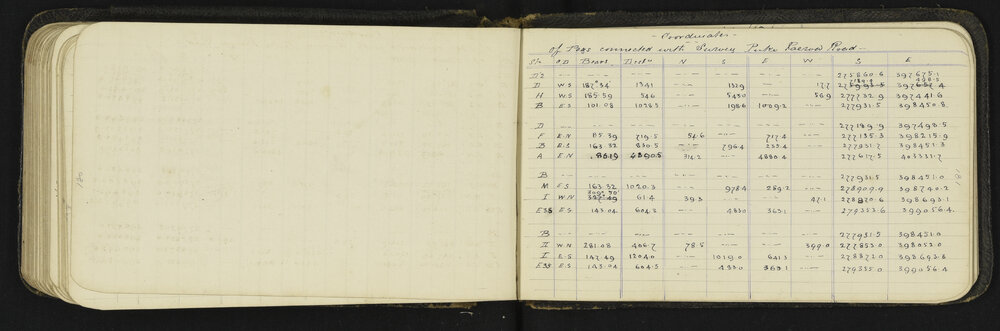 - Coordinates -
of Pegs connected with Survey Puke Road -
Stn OD Bears Dist N S E W S E
D2 --- --- --- --- 275860.6 397675.1
D W.S 187°34' 1341 --- 1329 --- 177
H W.S 185.59 546 --- 5430 --- 56.9 277732.9 397441.6
B E.S 101.08 1028.5 --- 198.6 1009.2 --- 277931.5 398450.8
D --- --- --- --- --- --- 277189.9 397498.5
F E.N 85.39 719.5 54.6 --- 717.4 --- 277135.3 398215.9
B E.S 163.32 830.5 --- 796.4 235.4 --- 277931.7 398451.3
A E.N 4890.5 314.2 --- 4880.4 --- 277617.5 403331.7
B --- --- --- --- --- --- 277931.5 398451.0
M E.S 163.32 1020.3 --- 978.4 289.2 --- 278909.9 398740.2
I W.N 61.4 39.3 --- --- 47.1 278870.6 398693.1
E38 E.S 143.04 604.5 --- 4830 363.1 --- 279353.6 399056.4.
B --- --- --- --- --- --- 277931.5 398451.0
H W.N 281.08 406.7 78.5 --- --- 399.0 277853.0 398052.0
I E.S 147.49 1204.0 --- 1019.0 641.3 --- 278872.0 398693.3
E38 E.S 143.04 604.5 --- 4830 363.1 --- 279355.0 399056.4
181
180